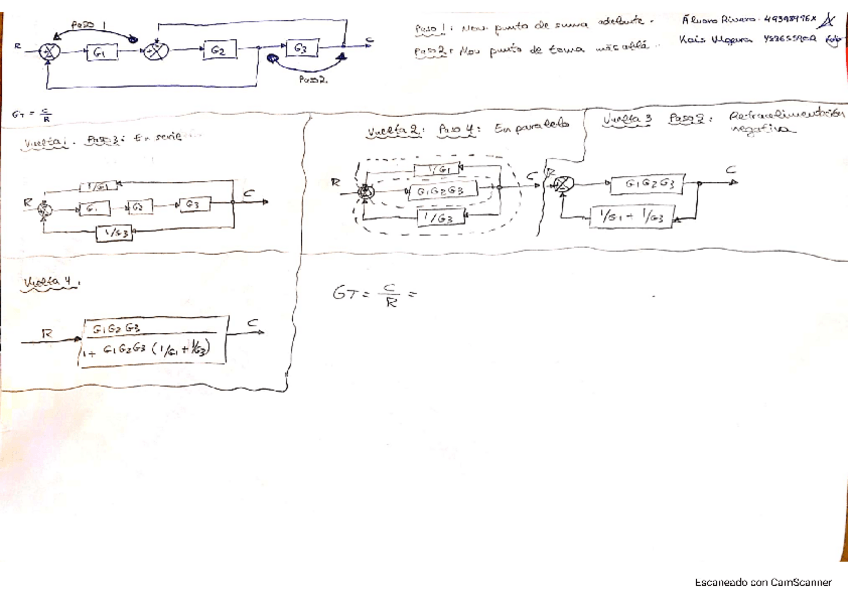 Paso 1
R
G1
G2
G3
C
Paso 2
Paso 1: Mov punto de suma adelante.
Paso 2: Mov punto de toma más allá.
Álvaro Rivero
GT = C/R
Vuelta 1. Paso 3: En serie
1/G1
R
G1
G2
G3
C
1/G3
Vuelta 2: Paso 4: En paralelo
1/G1
R
G1G2G3
C
1/G3
Vuelta 3 Paso 2: Retroalimentación
negativa
R
G1G2G3
C
1/G1 - 1/G3
Vuelta 4.
R
G1G2G3
1+ G1G2G3 (1/G1 + 1/G3)
C
GT = C/R =
Escaneado con CamScanner